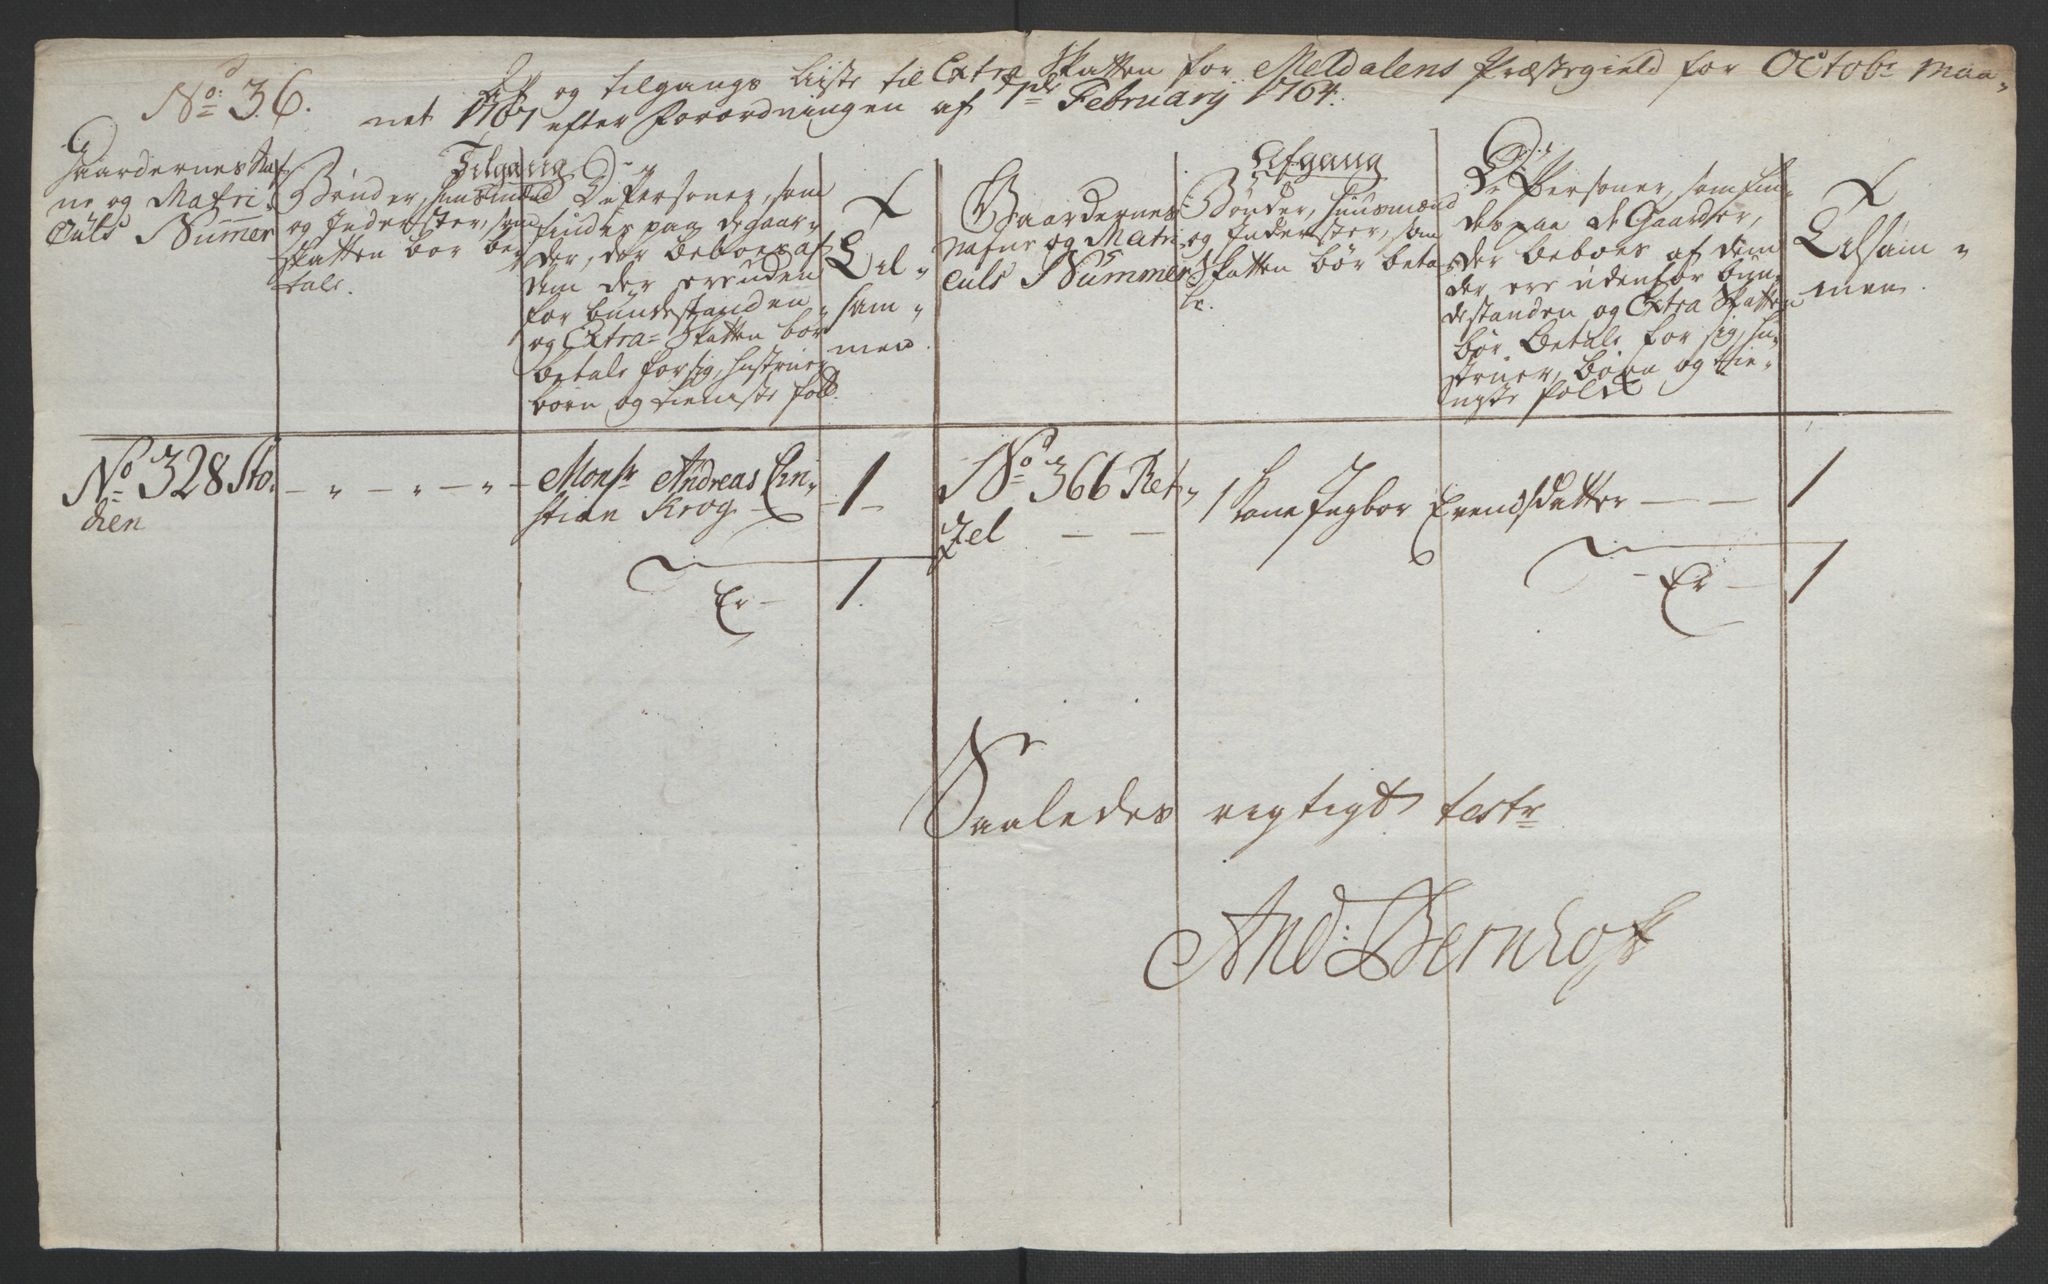 No: 36.
Af og tilgangs Liste til Extra Skatten for Meldalens Præstegield for Octobr Maa-
net 1767 efter Forordningen af 7de February 1764.
Tilgang
Gaardernes Naf-
ne og Matri-
culs Nummer
Bønder, Huusmænd
og Inderster, som
skatten bør be-
tale.
De Personer, som
findes paa de gaar-
der, der beboes af
dem der ere uden
for bundestanden
og Extra-Skatten bør
betale for sig, hustruer
børn og tieniste folk.
Til-
sam-
men.
Afgang
Gaardernes
Nafne og Matri-
culs Nummer
Bønder, Huusmænd
og Inderster, som
Skatten bør beta-
le.
De Personer, som fin-
des paa de Gaarder,
der beboes af dem
der ere udenfor bun-
destanden og Extra Skatten
bør betale for sig, hu-
struer, børn og tie-
niste folk
Tilsam-
men.
No 328 Sto-
dien
- " - " - " -
Monsr Andreas Chri-
stian Krog -
1
Er - 1.
No 366 Ret-
zel - -
1 Kone Ingbor Evendsdatter - - 1
Er - 1
Saaledes rigtigt testr
And: Bernhoft